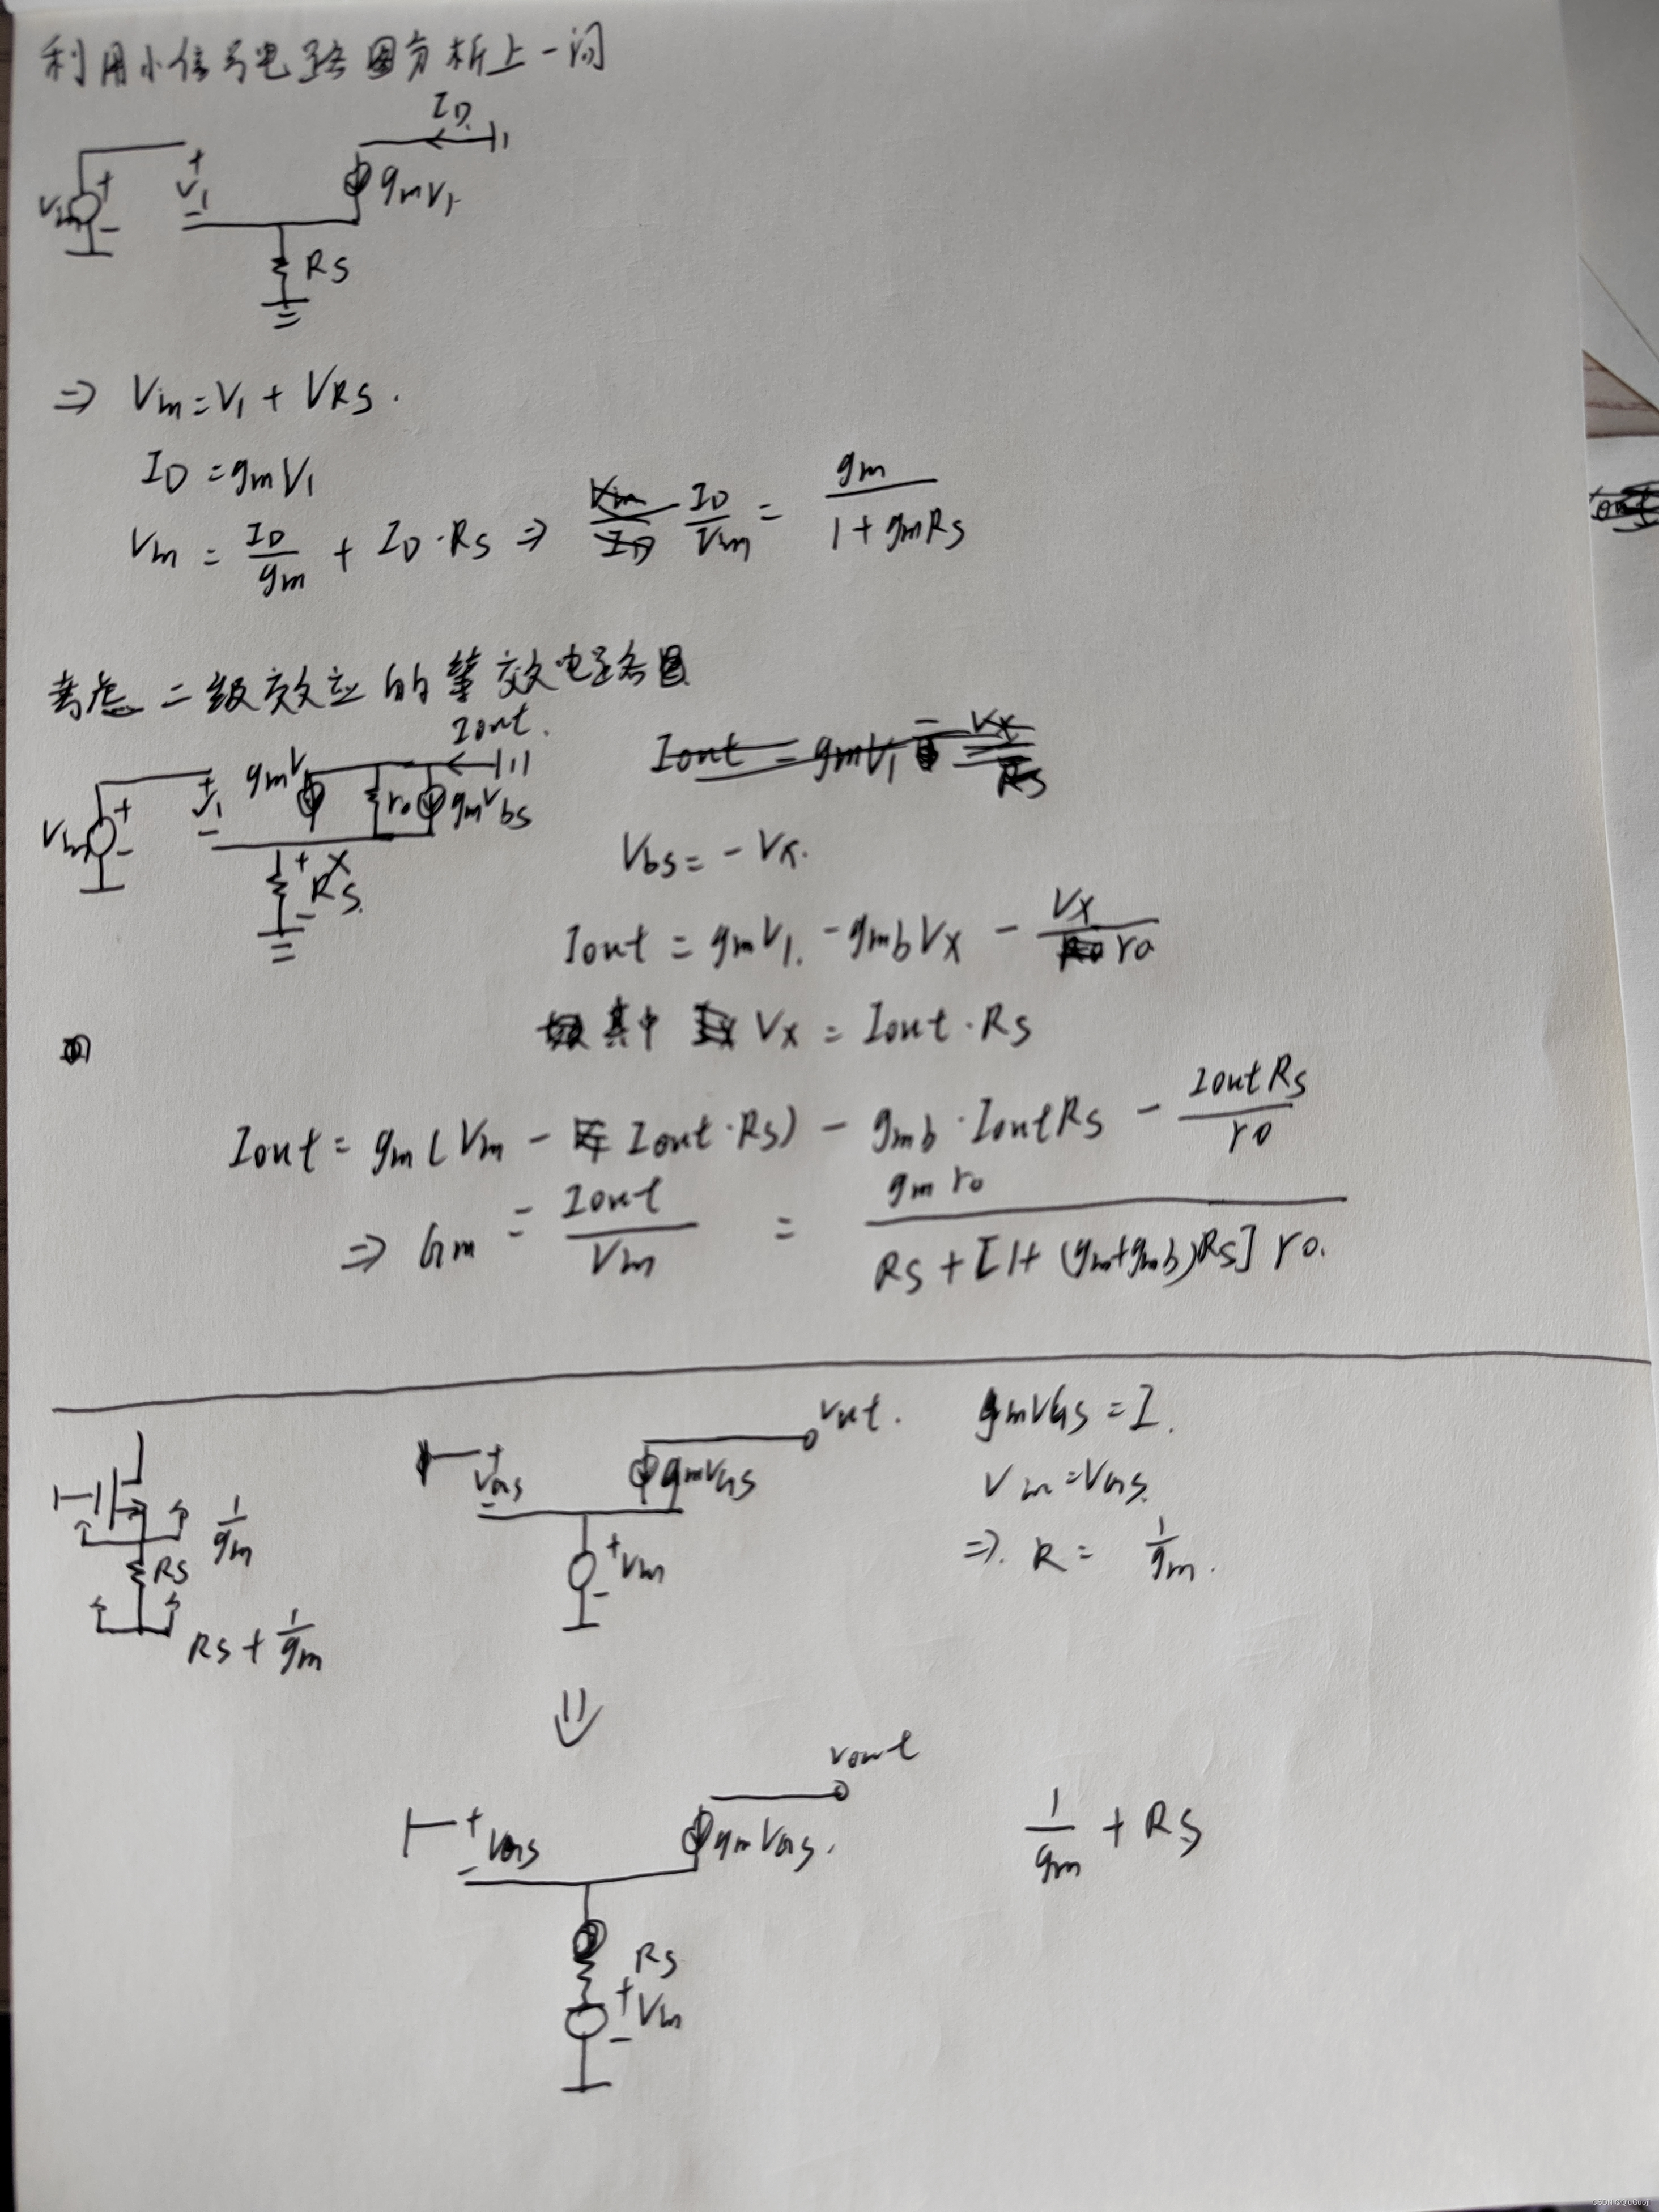 利用小信号电路图分析上一问
ID
Vin + - + V1 - gmV1
RS
⇒ Vin = V1 + VRS.
ID = gmV1
Vin = ID/gm + ID·RS ⇒ ID/Vin = gm/(1+gmRS)
考虑二级效应的等效电路图
Iout.
Vin + - + V1 - gmV1 ro gmVbs
+ X RS. -
Vbs = -VX.
Iout = gmV1. - gmbVX - VX/ro
其中 VX = Iout·RS
Iout = gm(Vin - Iout·RS) - gmb·IoutRS - IoutRS/ro
⇒ Gm = Iout/Vin = gmro/(RS+[1+(gm+gmb)RS]ro.
1/gm
RS
RS + 1/gm
Vout.
+ VGS - gmVGS
+ Vin -
gmVGS = I.
Vin = VGS.
⇒. R = 1/gm.
⇓
Vout
+ VGS - gmVGS.
RS
+ Vin -
1/gm + RS